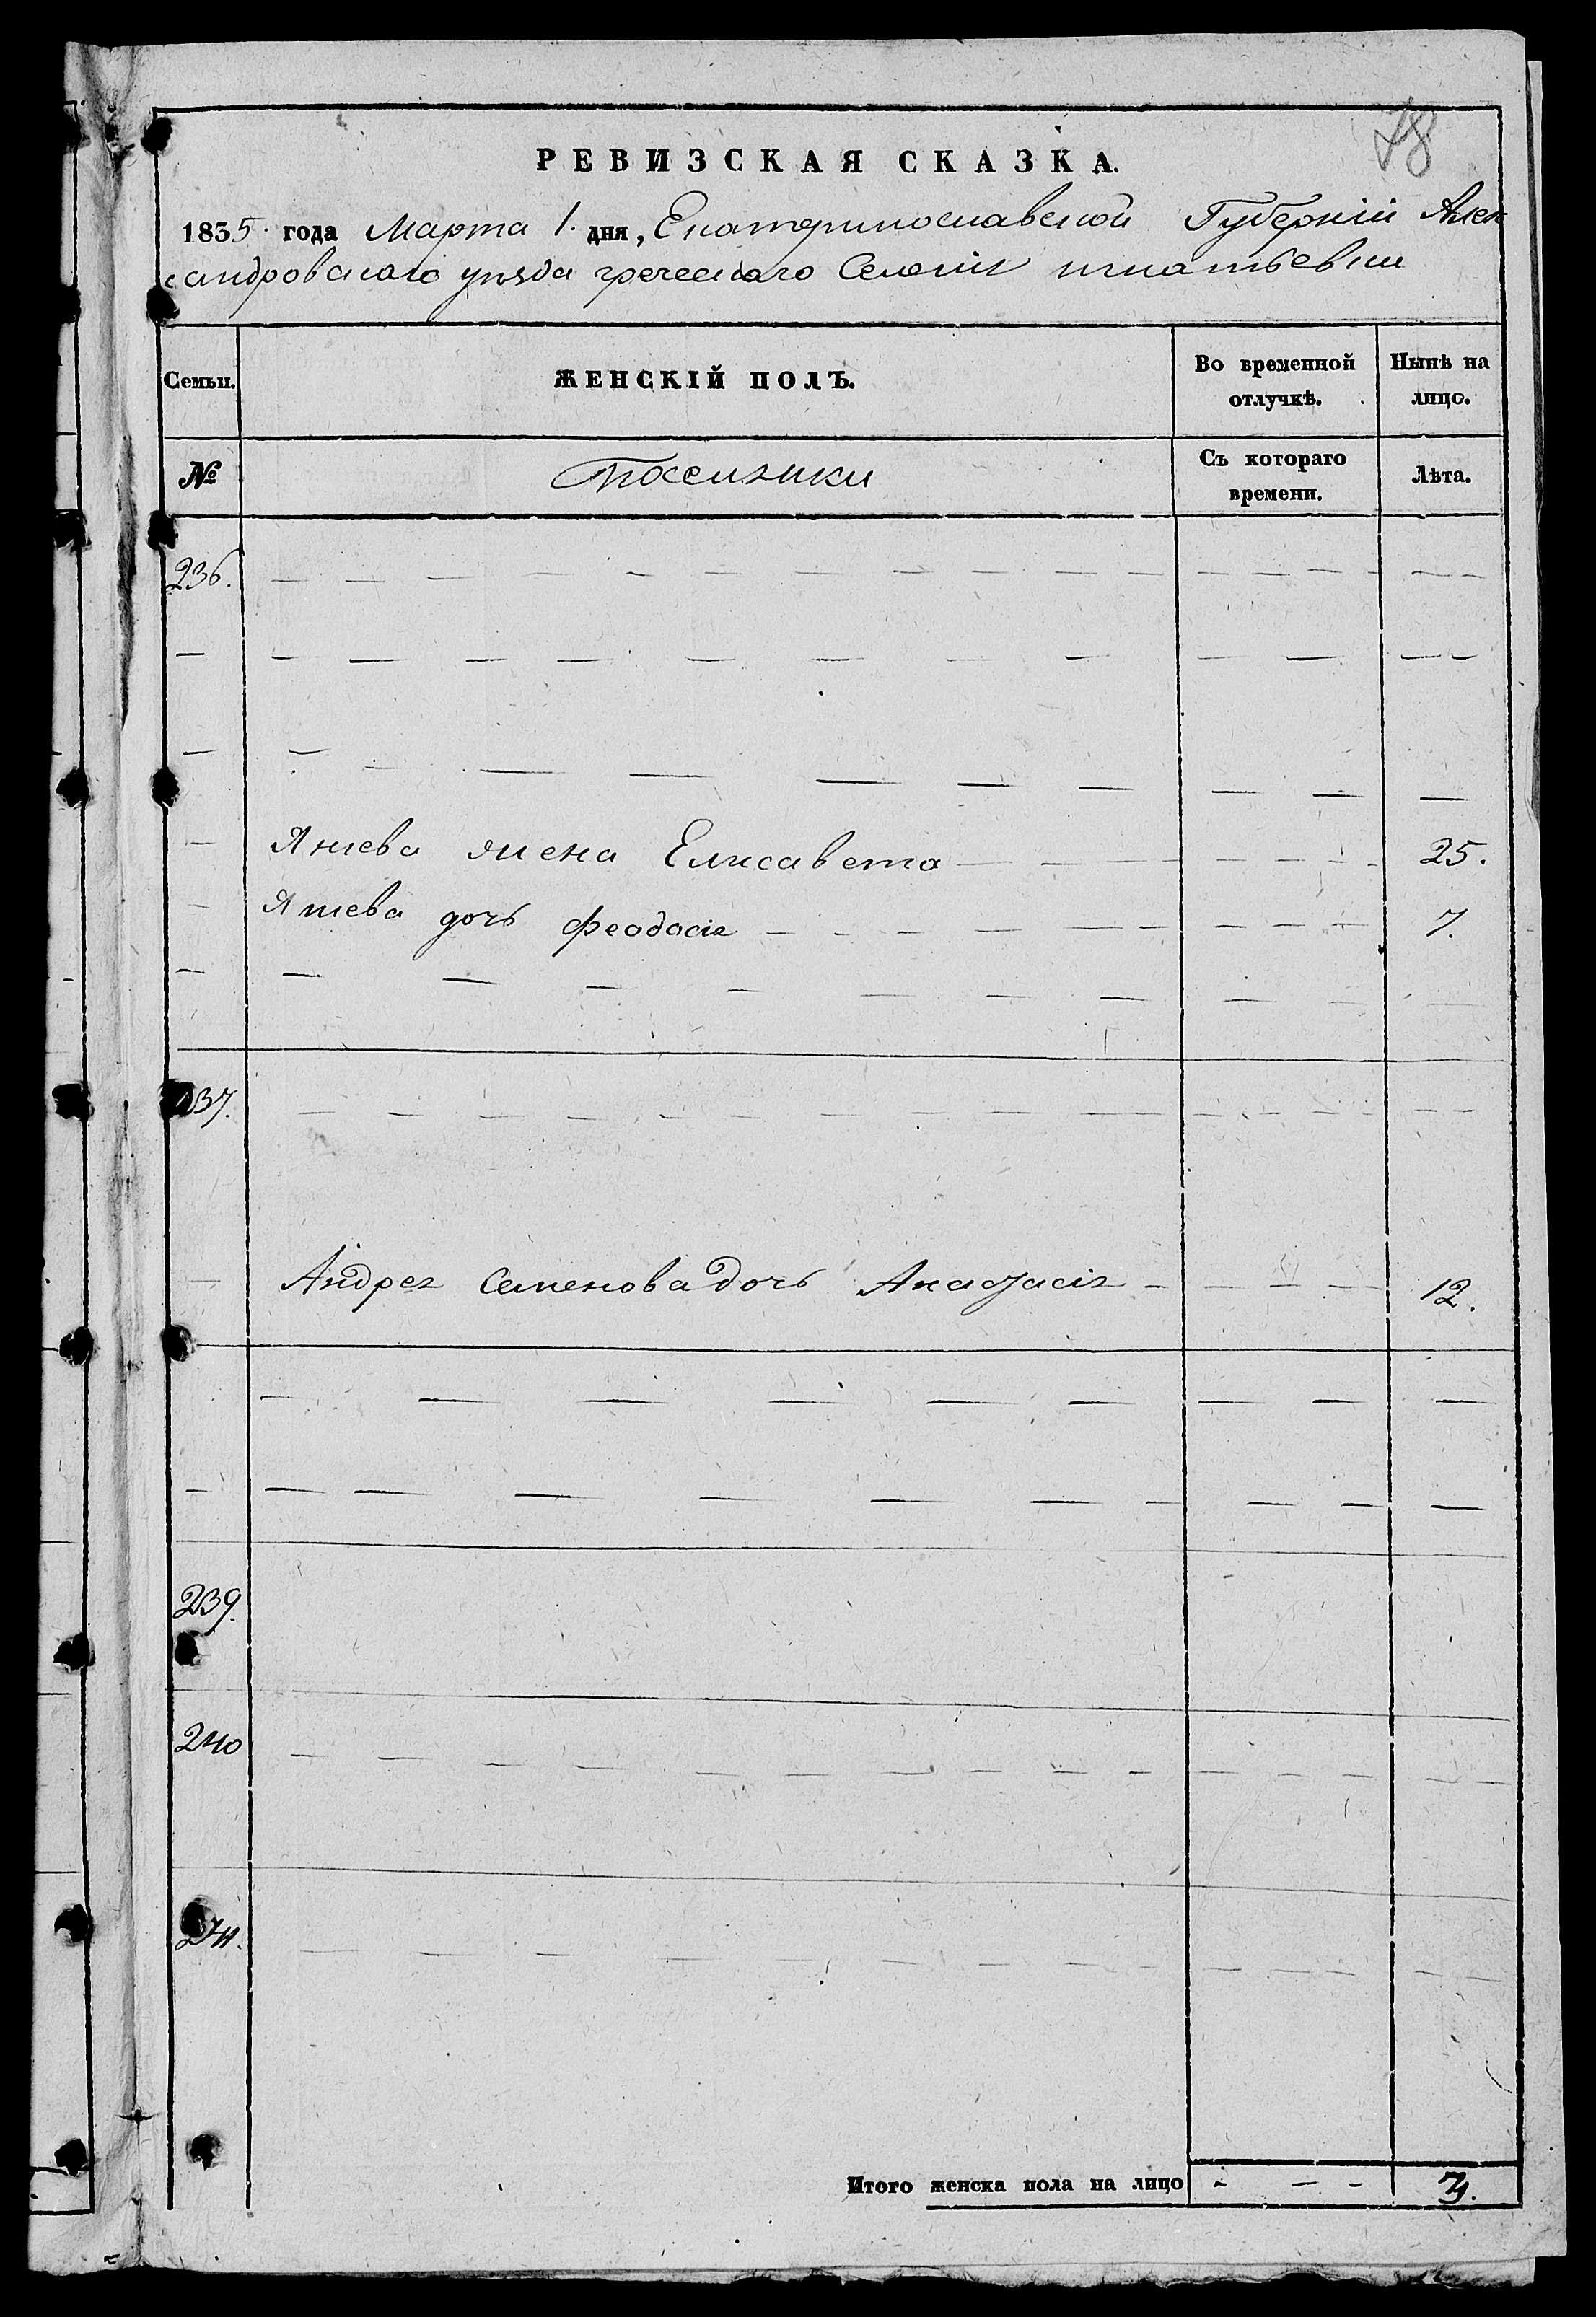 78
РЕВИЗСКАЯ СКАЗКА.
1835. года Марта 1. дня, Екатеринославской Губерніи Алек
сандровскаго уѣзда греческаго Селенія игнатьевки
Семьи.
ЖЕНСКІЙ ПОЛЪ.
Во временной отлучкѣ.
Нынѣ на лицо.
№
Поселянки
Съ котораго времени.
Лѣта.
236.
Янева жена Елисавета 25.
Янева дочь Феодосія 7.
237.
Андрея Семенова дочь Анастасія 12.
239.
240
241.
Итого женска пола на лицо 3.